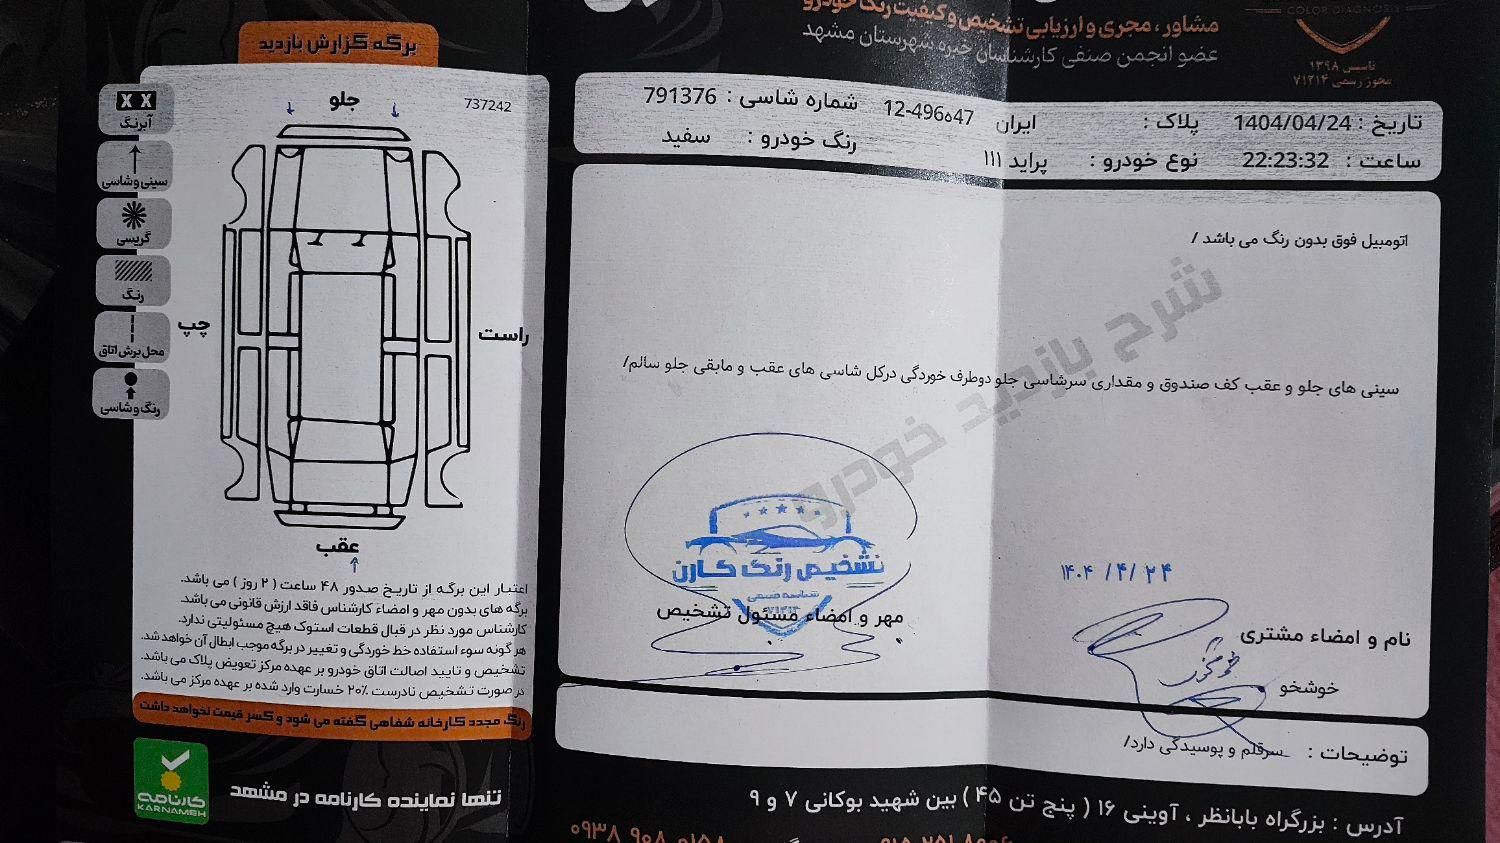 مشاور ، مجری و ارزیابی تشخیص و کیفیت رنگ خودرو
عضو انجمن صنفی کارشناسان خبره شهرستان مشهد
COLOR DIAGNOSIS
تاسیس ۱۳۹۸
مجوز رسمی ۷۱۲۱۴
تاریخ : 1404/04/24
پلاک : ایران 12-496ه47
شماره شاسی : 791376
ساعت : 22:23:32
نوع خودرو : پراید ۱۱۱
رنگ خودرو : سفید
اتومبیل فوق بدون رنگ می باشد /
سینی های جلو و عقب کف صندوق و مقداری سرشاسی جلو دوطرف خوردگی درکل شاسی های عقب و مابقی جلو سالم/
شرح بازدید خودرو
تشخیص رنگ کارن
شناسه صنفی
مهر و امضاء مسئول تشخیص
۱۴۰۴ /۴/ ۲۴
نام و امضاء مشتری
خوشخو
توضیحات : سرقلم و پوسیدگی دارد/
آدرس : بزرگراه بابانظر ، آوینی ۱۶ ( پنج تن ۴۵ ) بین شهید بوکانی ۷ و ۹
برگه گزارش بازدید
737242
جلو
آبرنگ
سینی و شاسی
گریسی
رنگ
محل برش اتاق
رنگ و شاسی
چپ
راست
عقب
اعتبار این برگه از تاریخ صدور ۴۸ ساعت ( ۲ روز ) می باشد.
برگه های بدون مهر و امضاء کارشناس فاقد ارزش قانونی می باشد.
کارشناس مورد نظر در قبال قطعات استوک هیچ مسئولیتی ندارد.
هر گونه سوء استفاده خط خوردگی و تغییر در برگه موجب ابطال آن خواهد شد.
تشخیص و تایید اصالت اتاق خودرو بر عهده مرکز تعویض پلاک می باشد.
در صورت تشخیص نادرست ۲۰٪ خسارت وارد شده بر عهده مرکز می باشد.
رنگ مجدد کارخانه شفاهی گفته می شود و کسر قیمت نخواهد داشت
کارنامه
KARNAMEH
تنها نماینده کارنامه در مشهد